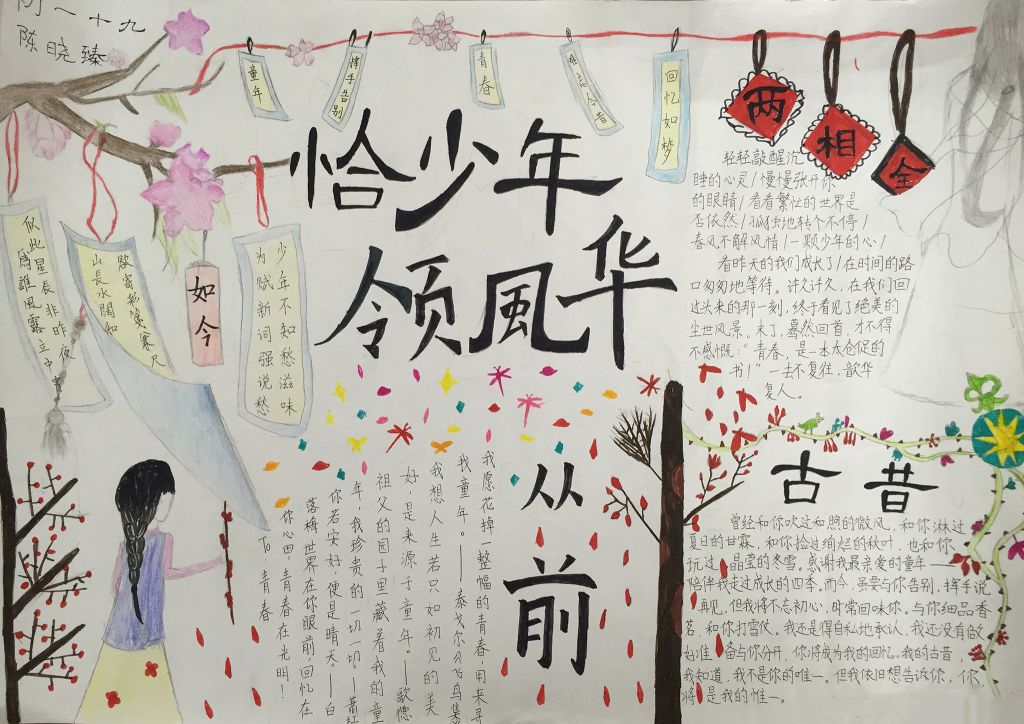 陈晓臻
童年
挥手告别
青春
回忆如梦
两相全
恰少年
领風华
似此星辰非昨夜
爲誰風露立中宵
欲寄彩箋寒尺
山長水闊知
如今
少年不知愁滋味
为赋新词强说愁
轻轻敲醒沉
睡的心灵/慢慢张开你
的眼睛/看看繁忙的世界是
否依然/孤独地转个不停/
春风不解风情/一颗少年的心/
看昨天的我们成长了/在时间的路
口匆匆地等待。许久许久,在我们回
过头来的那一刻,终于看见了绝美的
尘世风景。末了,蓦然回首,才不得
不感慨:“青春,是一本太仓促的
书!”一去不复往,韶华
复人。
从前
我愿花掉一整幅的青春,用来寻
我童年。——泰戈尔《飞鸟集
我想人生若只如初见的美
好,是来源于童年。——歌德
祖父的园子里藏着我的童
年,我珍贵的一切一切。——萧红
你若安好便是晴天——白
落梅世界在你眼前,回忆在
你心田,青春在光明!
To:青春
古昔
曾经和你吹过和煦的微风,和你淋过
夏日的甘霖,和你捡过绚烂的秋叶,也和你
玩过晶莹的冬雪。感谢我最亲爱的童年——
陪伴我走过成长的四季。而今,虽要与你告别,挥手说
再见,但我将不忘初心,时常回味你。与你细品香
茗,和你打雪仗。我还是得自私地承认,我还没有做
好准备与你分开,你将成为我的回忆,我的古昔,
我知道,我不是你的唯一,但我依旧想告诉你,你,
将是我的惟一。